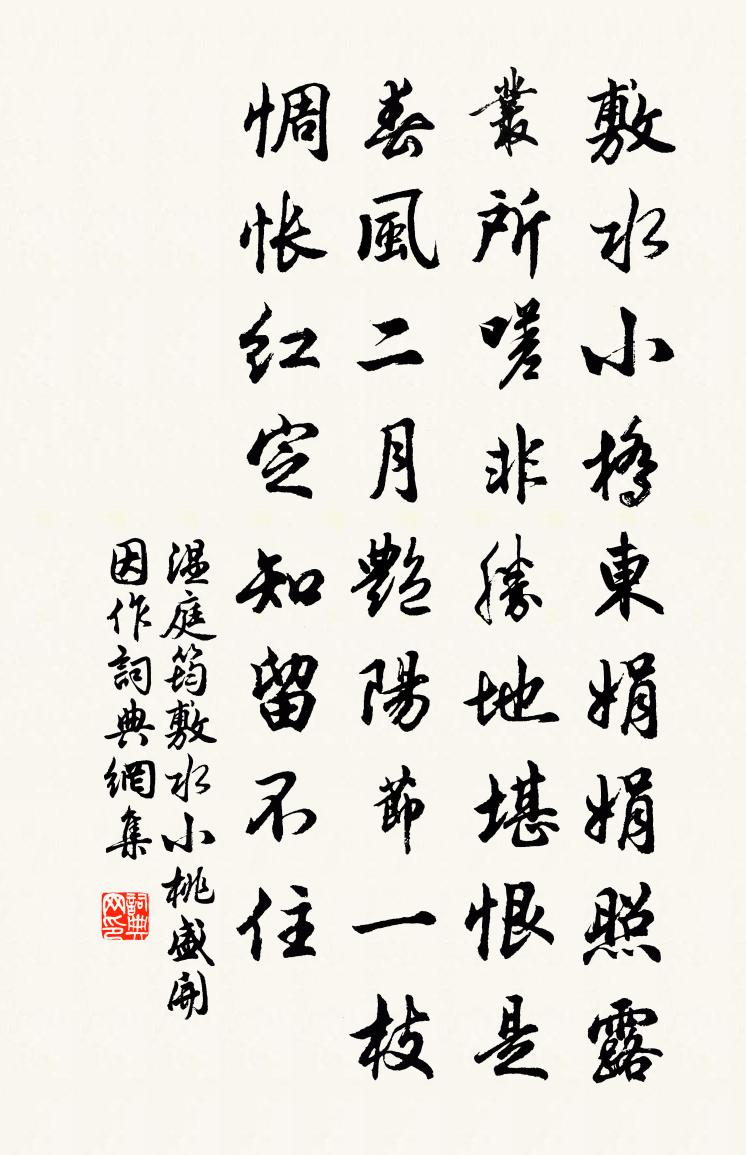 敷水小橋東娟娟照露
叢所嗟非勝地堪恨是
春風二月艷陽節一枝
惆悵红定知留不住
温庭筠敷水小桃盛開
因作詞典網集
詞典网印